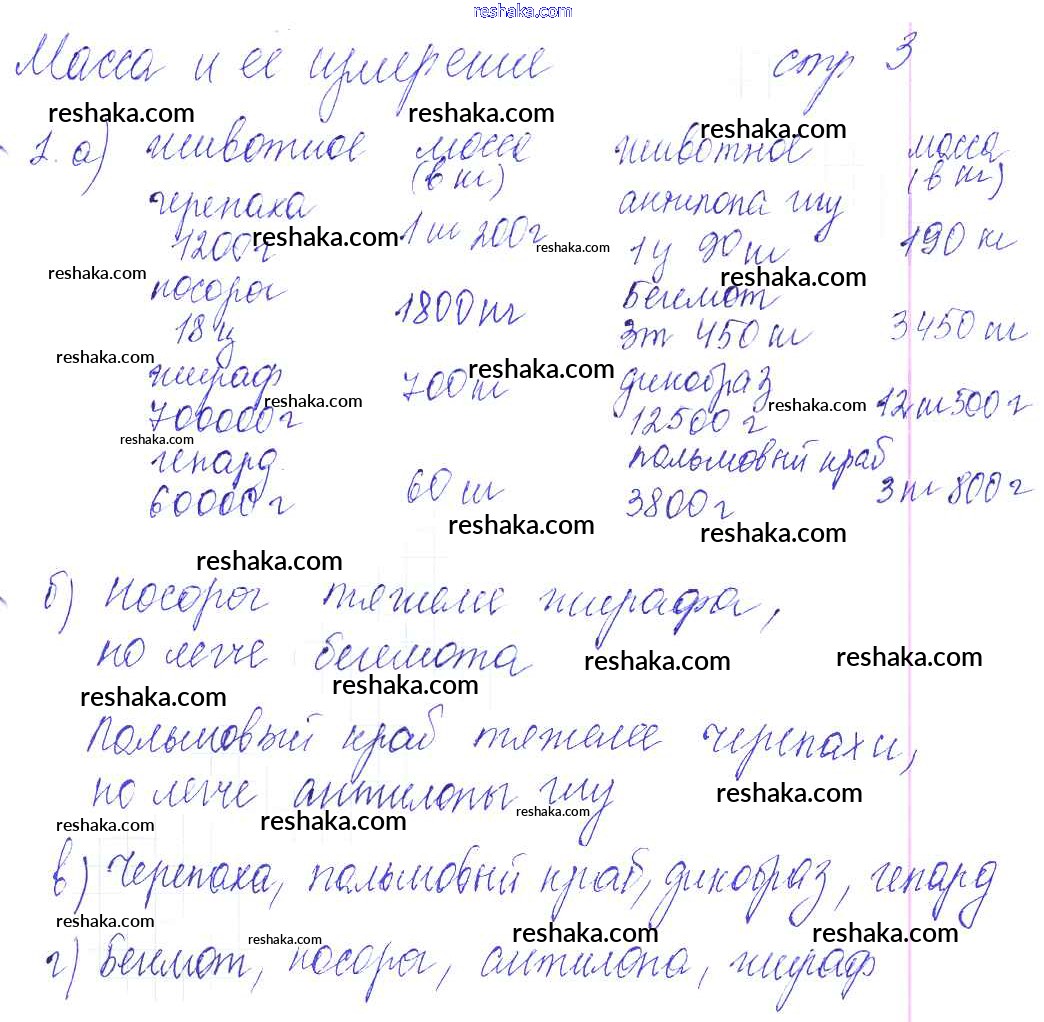 reshaka.com
Масса и её измерение стр 3
reshaka.com reshaka.com reshaka.com
1. а) животное масса животное масса
(в кг) (в кг)
черепаха антилопа гну
1200г reshaka.com 1 кг 200г reshaka.com 1ц 90кг 190 кг
reshaka.com reshaka.com
носорог бегемот
18 ц 1800кг 3т 450 кг 3450 кг
reshaka.com reshaka.com
жираф 700кг дикобраз
700000г reshaka.com 12500 г reshaka.com 12кг500г
reshaka.com
гепард пальмовый краб
60000 г 60 кг 3800г 3кг 800г
reshaka.com reshaka.com
reshaka.com
б) Носорог тяжелее жирафа,
но легче бегемота reshaka.com reshaka.com
reshaka.com reshaka.com
Пальмовый краб тяжелее черепахи,
но легче антилопы гну reshaka.com
reshaka.com reshaka.com reshaka.com
в) Черепаха, пальмовый краб, дикобраз, гепард
reshaka.com reshaka.com reshaka.com reshaka.com
г) Бегемот, носорог, антилопа, жираф